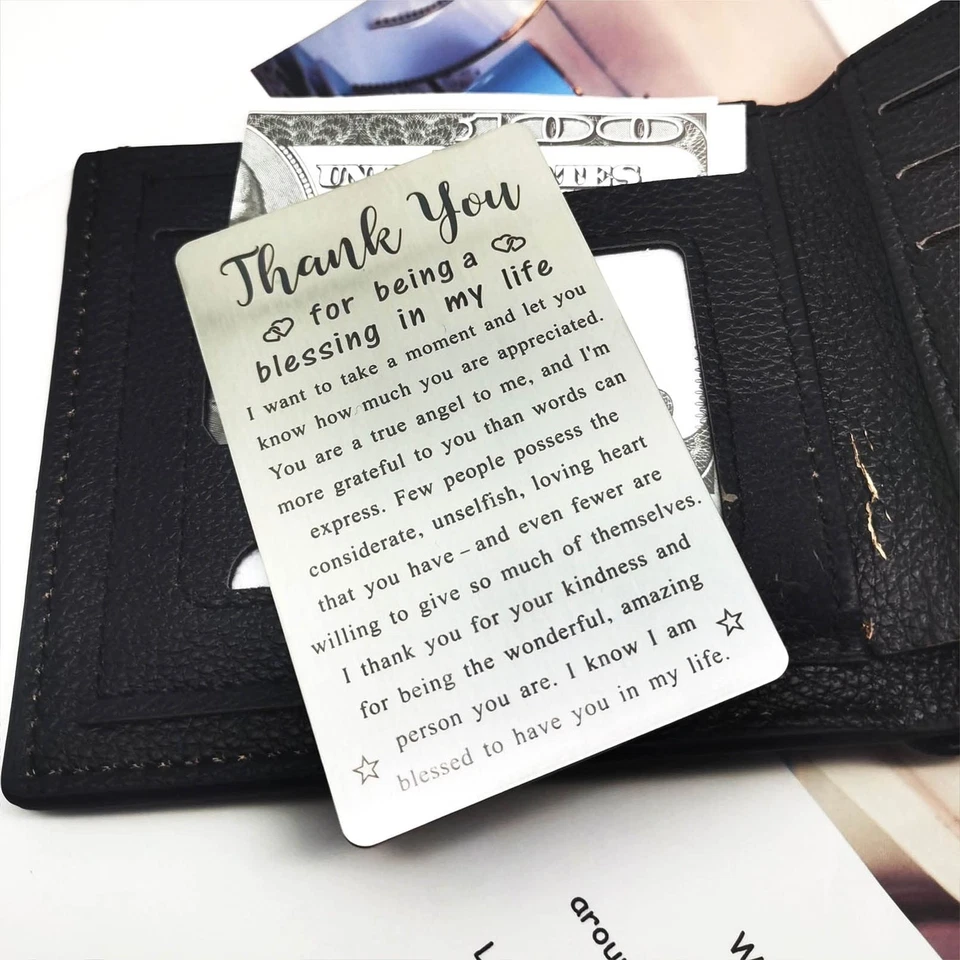 100
Thank You
for being a
blessing in my life
I want to take a moment and let you
know how much you are appreciated.
You are a true angel to me, and I'm
more grateful to you than words can
express. Few people possess the
considerate, unselfish, loving heart
that you have – and even fewer are
willing to give so much of themselves.
I thank you for your kindness and
for being the wonderful, amazing
person you are. I know I am
blessed to have you in my life.